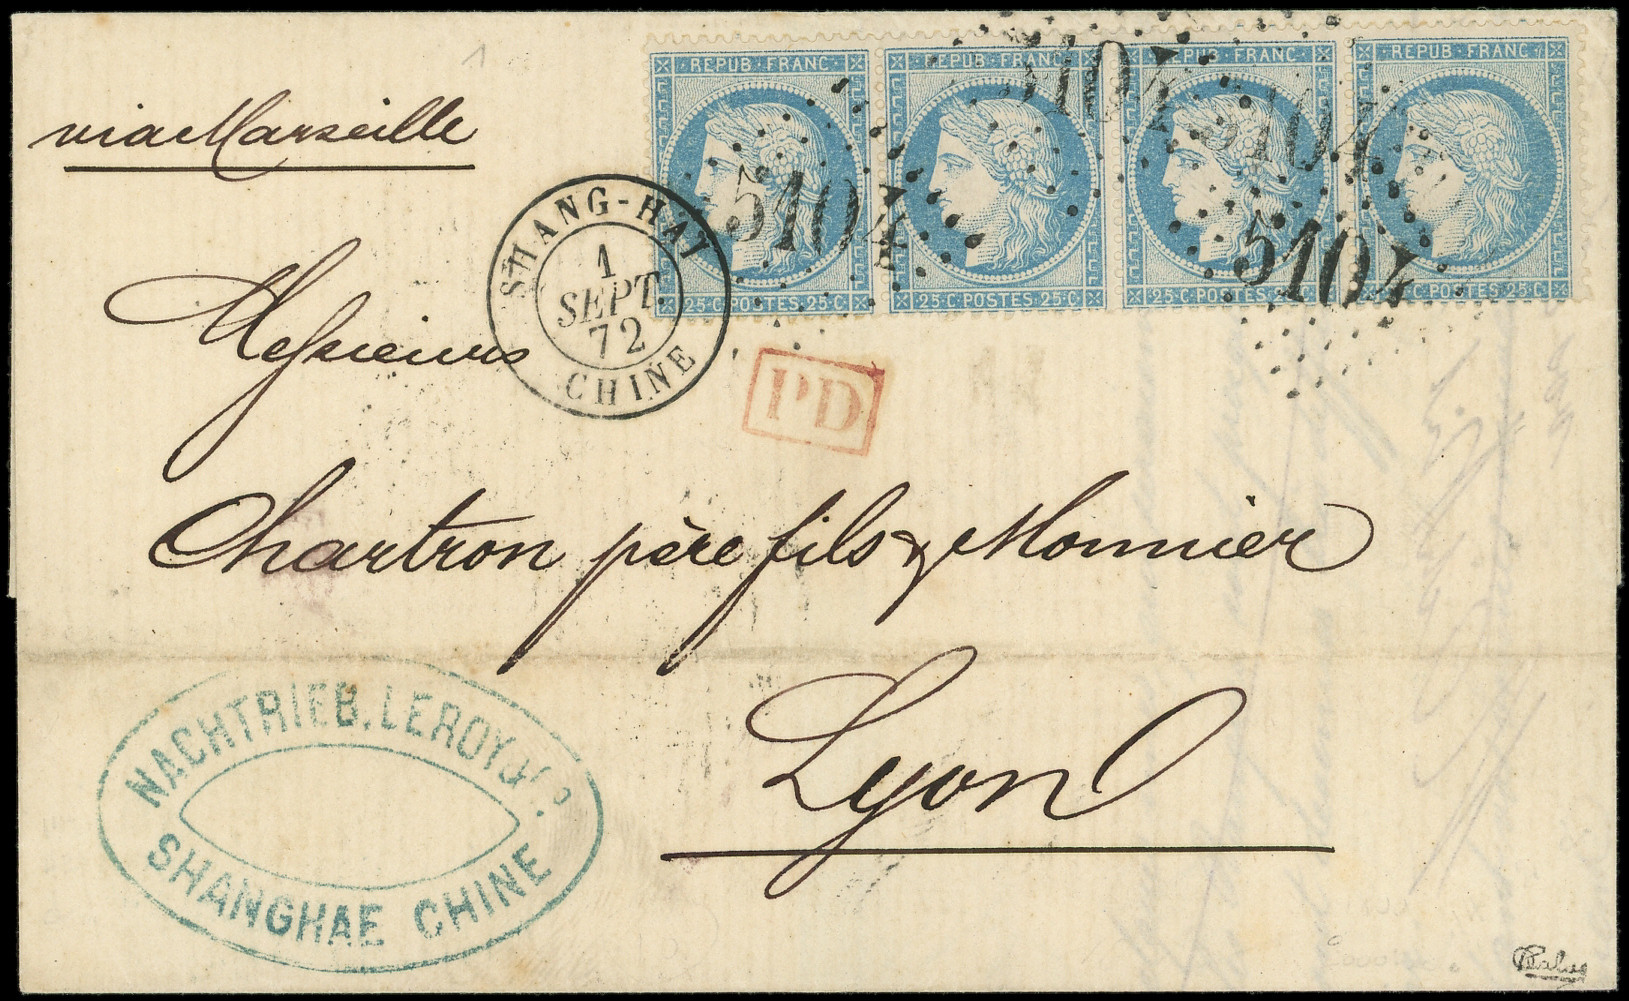 1
via Marseille
REPUB·FRANC· REPUB·FRANC· REPUB·FRANC· REPUB·FRANC·
5104 5104 5104 5104
25·C·POSTES·25·C· 25·C·POSTES·25·C· 25·C·POSTES·25·C· 25·C·POSTES·25·C·
SHANG-HAI
1
SEPT.
72
CHINE
PD
Messieurs
Chartron père fils & Monnier
Lyon
NACHTRIEB, LEROY & Cº.
SHANGHAE CHINE